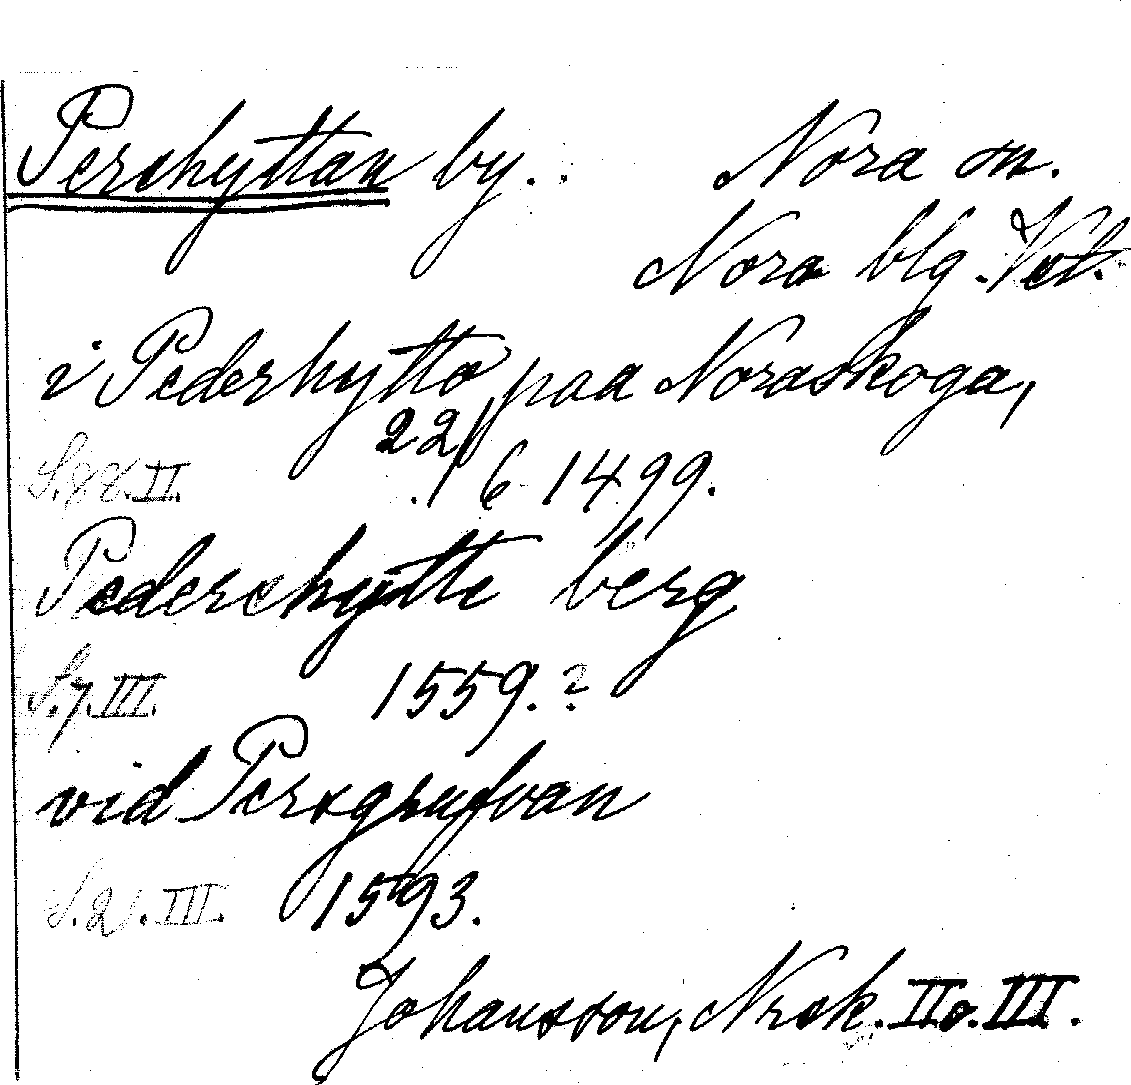 Pershyttan by. Nora sn.
Nora blg. Vstm.
i Pedershytto paa Noraskoga,
S. 88. II. 22/6 1499.
Pedershytte berg
S. 7. III. 1559.?
vid Persgrufvan
S. 21. III. 1593.
Johansson, Nrsk. II o. III.